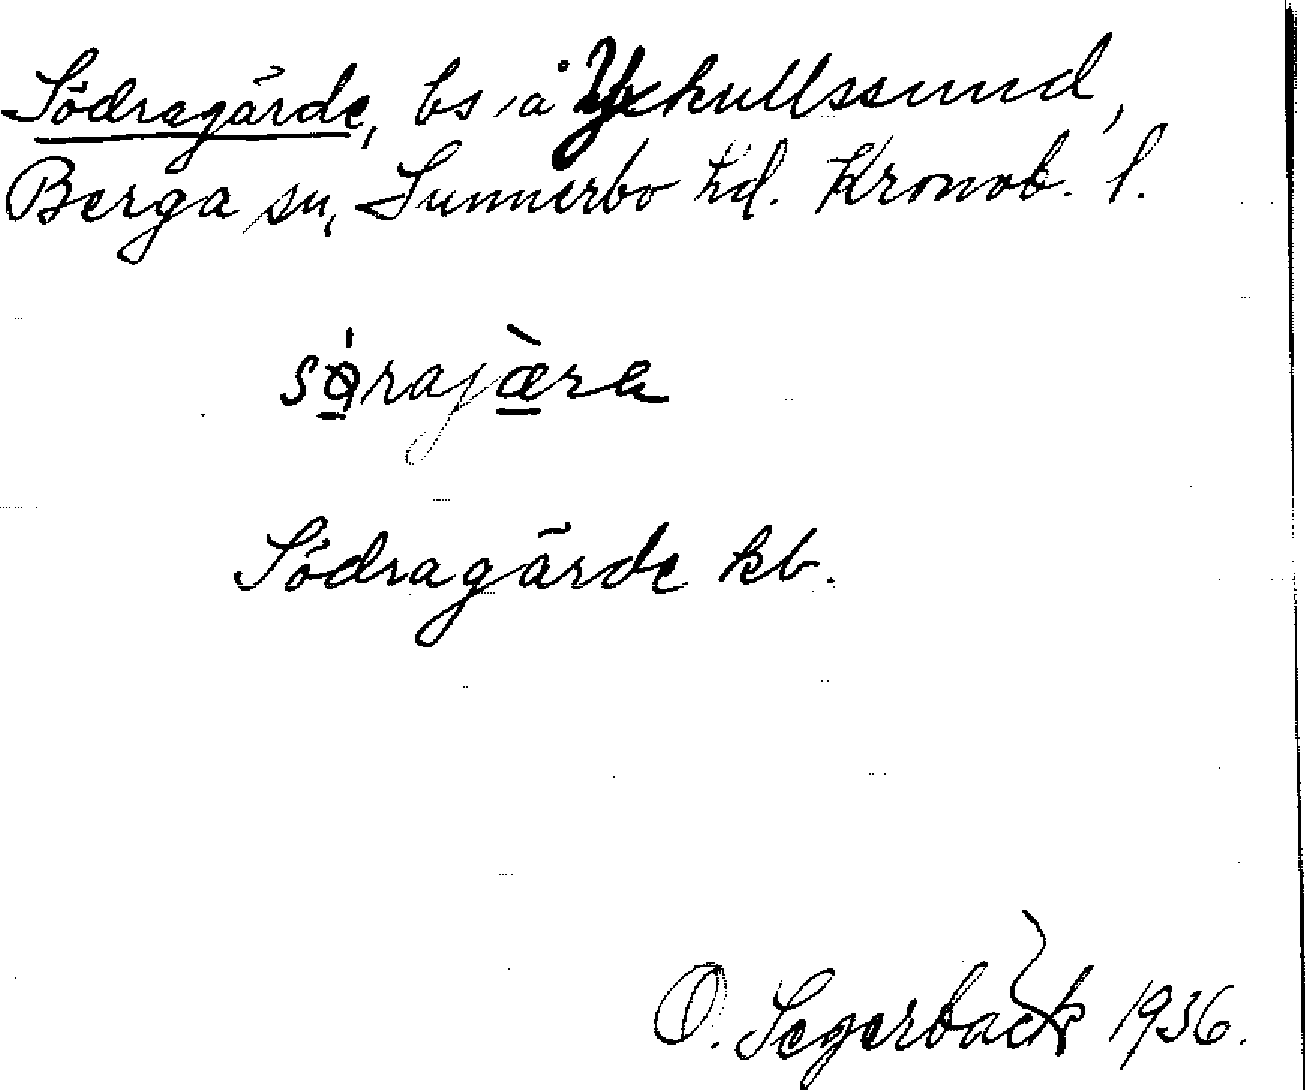 Södragärde, bs å Yxkullssund,
Berga sn, Sunnerbo hd. Kronob. l.
sørajæra
Södragärde kb.
O. Segerbäck 1936.